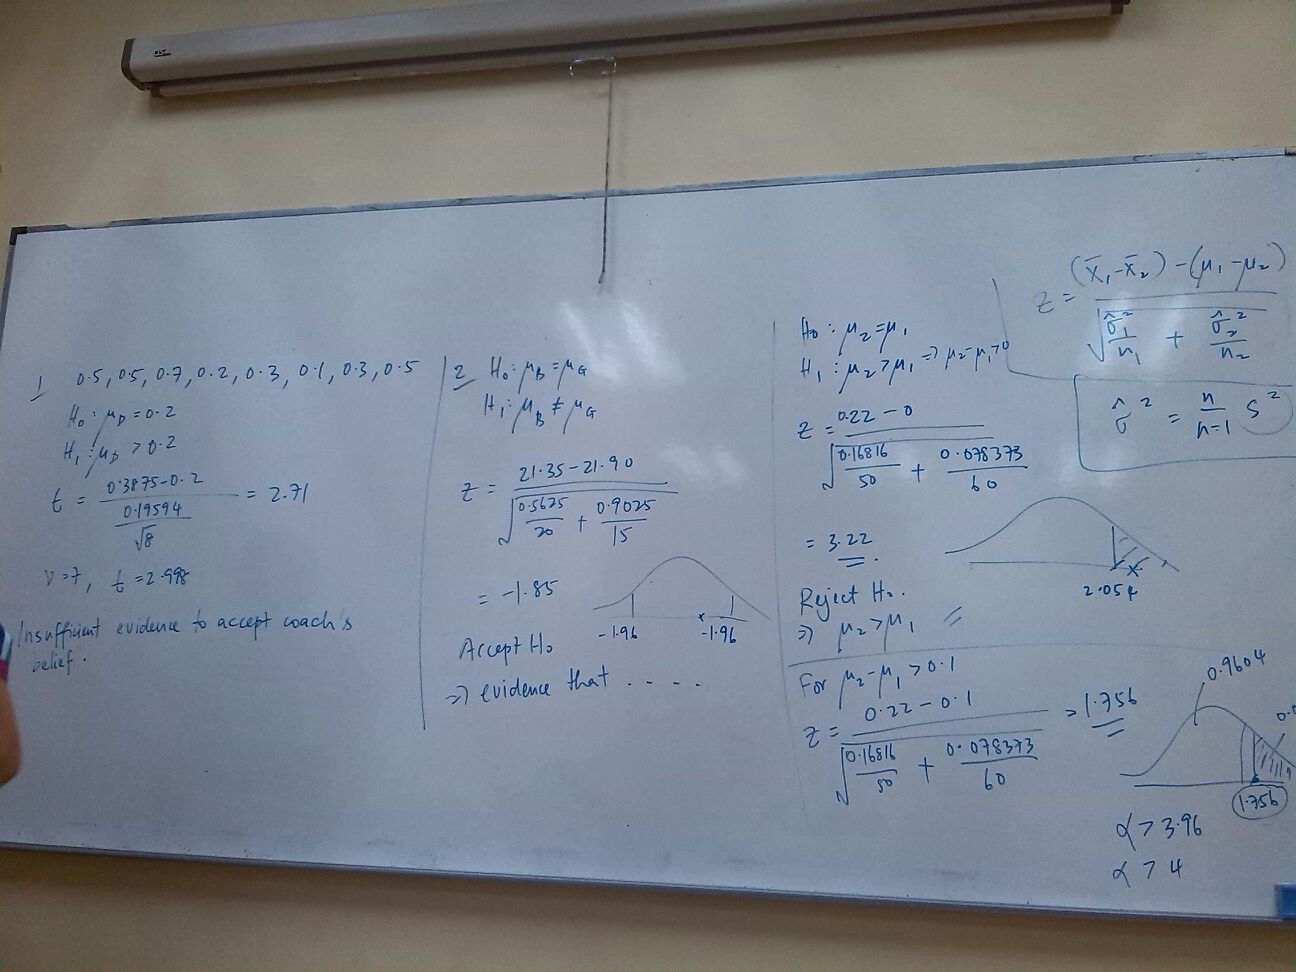 1 0.5, 0.5, 0.7, 0.2, 0.3, 0.1, 0.3, 0.5
H₀ : μ_D = 0.2
H₁ : μ_D > 0.2
t = (0.3875 - 0.2) / (0.19594 / √8) = 2.71
ν = 7, t = 2.998
Insufficient evidence to accept coach's
belief.
2 H₀ : μ_B = μ_G
H₁ : μ_B ≠ μ_G
z = (21.35 - 21.90) / √(0.5625/20 + 0.9025/15)
= -1.85
-1.96 × -1.96
Accept H₀
⇒ evidence that . . . .
H₀ : μ₂ = μ₁
H₁ : μ₂ > μ₁ ⇒ μ₂ - μ₁ > 0
z = (0.22 - 0) / √(0.16816/50 + 0.078373/60)
= 3.22
×
2.054
Reject H₀.
⇒ μ₂ > μ₁
For μ₂ - μ₁ > 0.1
z = (0.22 - 0.1) / √(0.16816/50 + 0.078373/60) = 1.756
z = ((x̄₁ - x̄₂) - (μ₁ - μ₂)) / √(σ̂₁²/n₁ + σ̂₂²/n₂)
σ̂² = n/(n-1) S²
0.9604
1.756
α > 3.96
α > 4